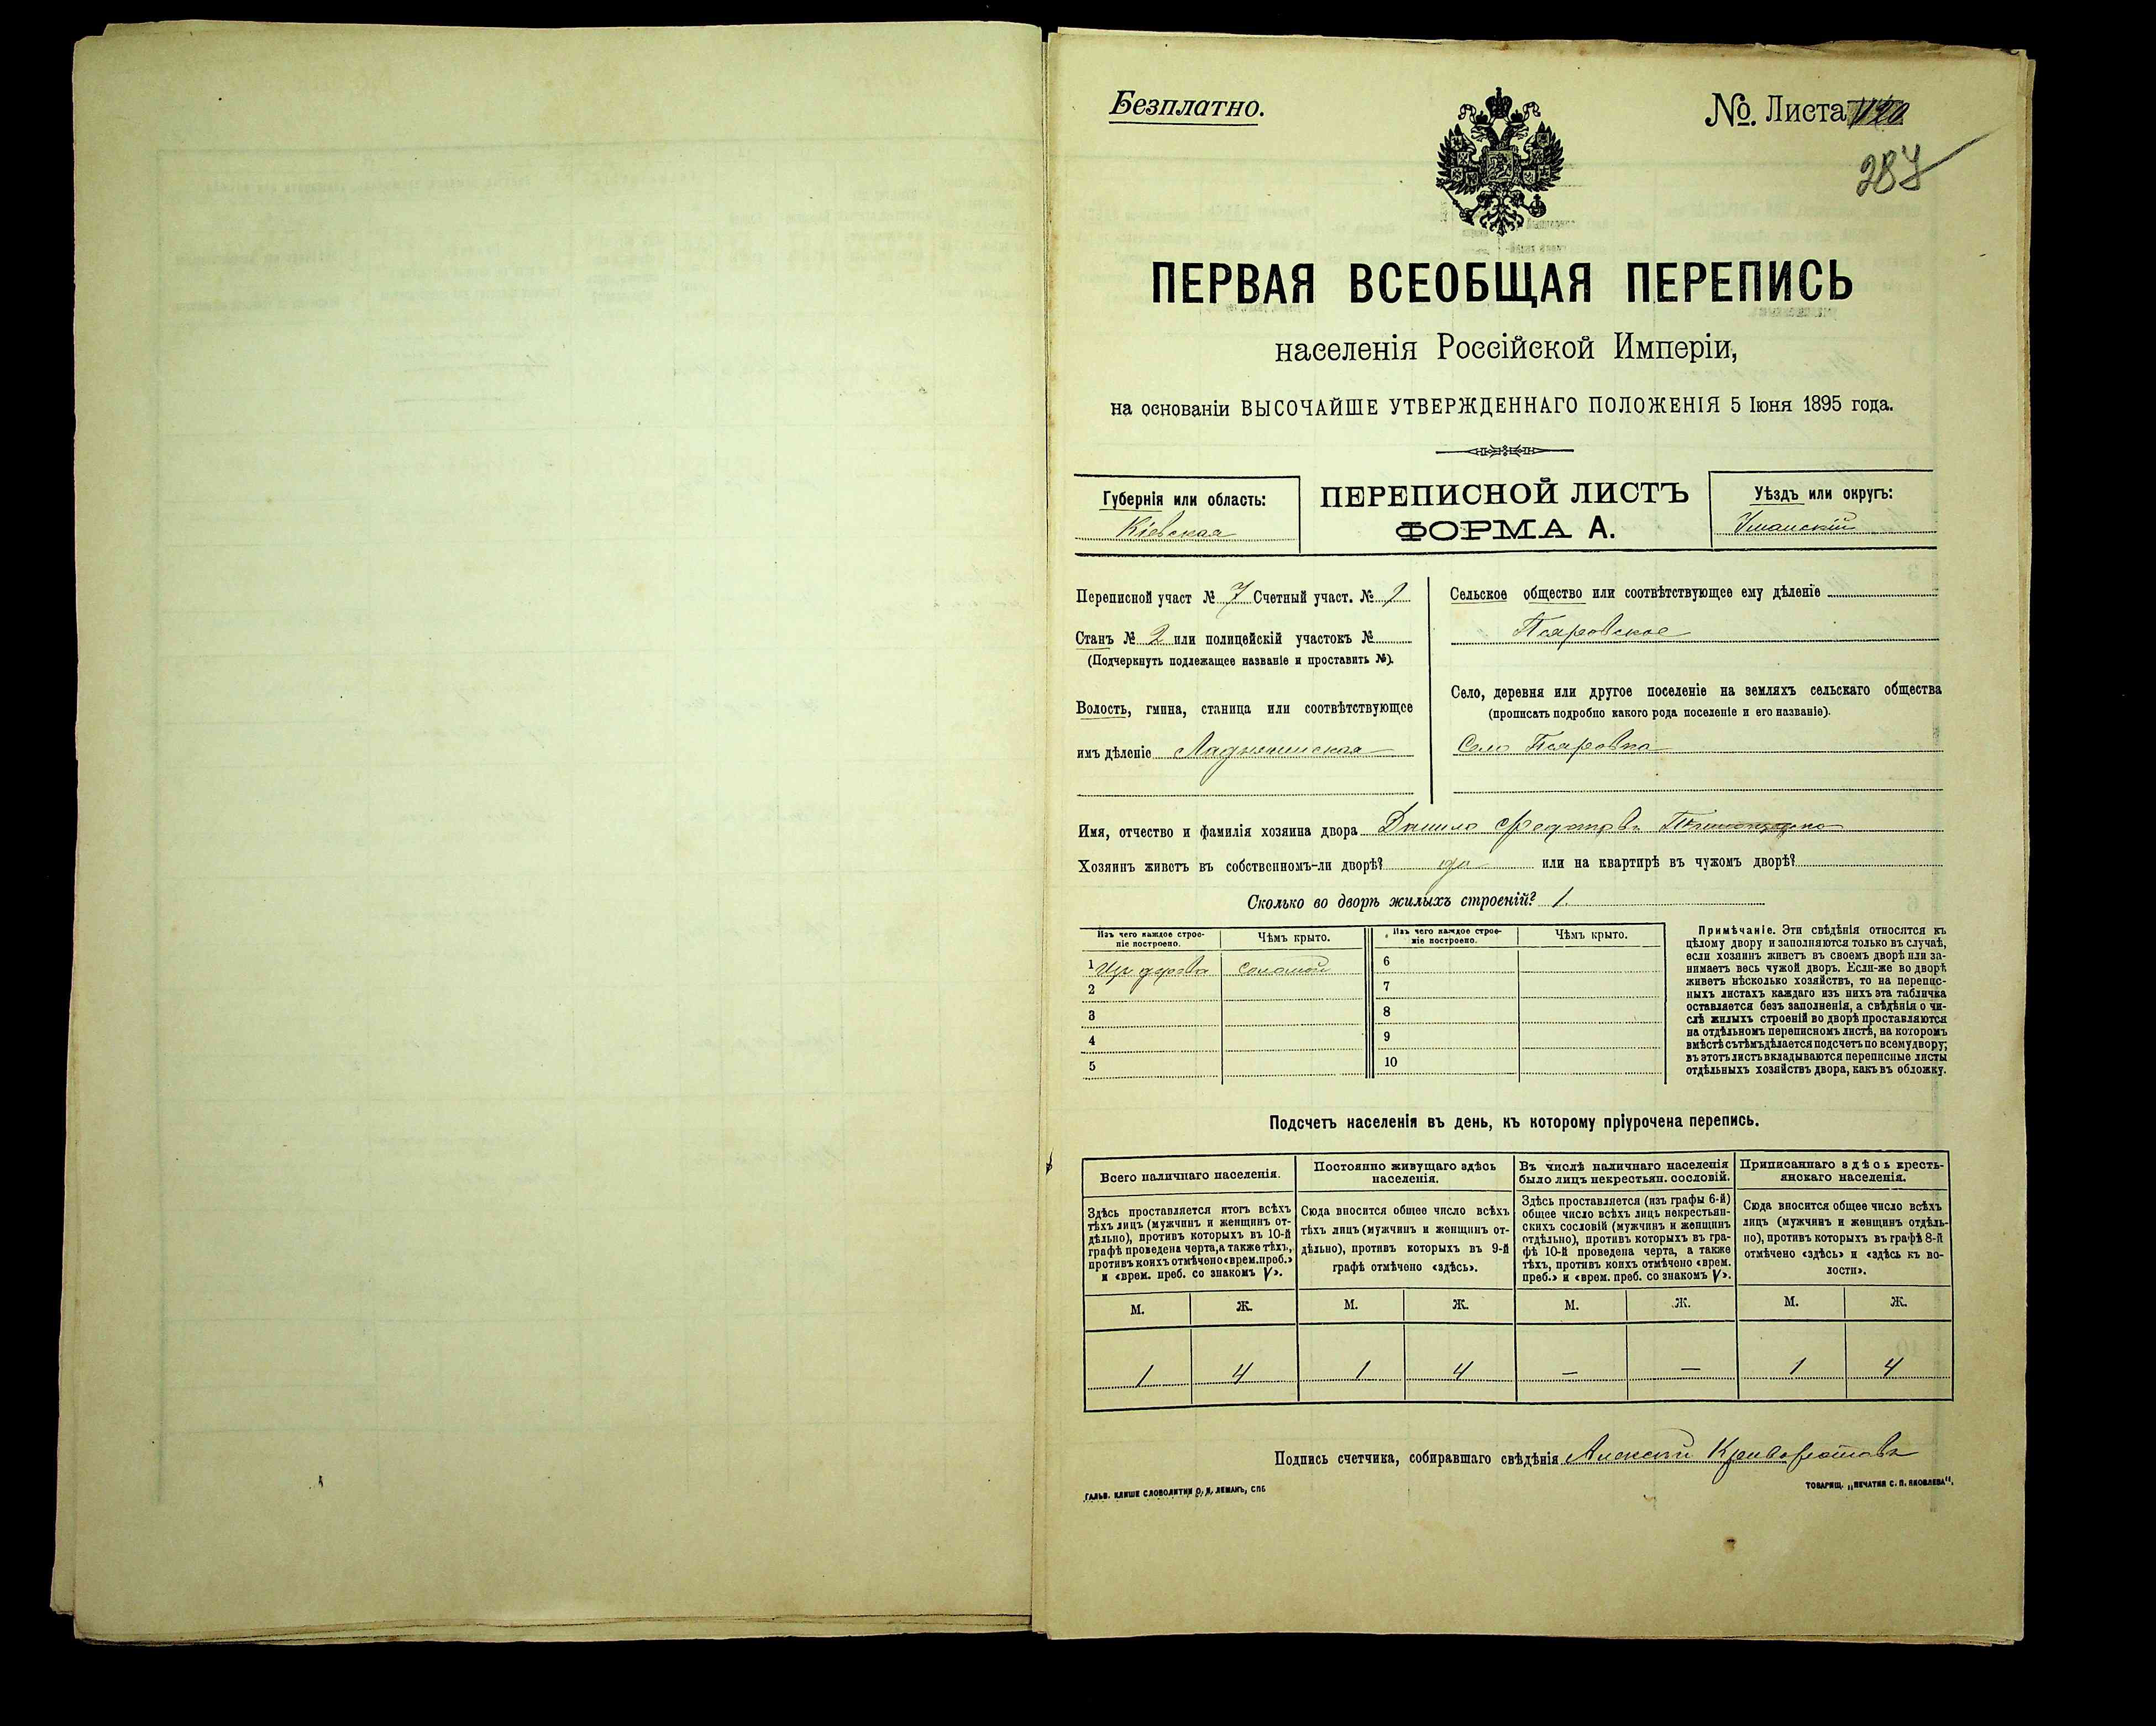 Безплатно.
№. Листа 120
287
ПЕРВАЯ ВСЕОБЩАЯ ПЕРЕПИСЬ
населенія Россійской Имперіи,
на основаніи ВЫСОЧАЙШЕ УТВЕРЖДЕННАГО ПОЛОЖЕНІЯ 5 Іюня 1895 года.
Губернія или область:
Кіевская
ПЕРЕПИСНОЙ ЛИСТЪ
ФОРМА А.
Уѣздъ или округъ:
Уманскій
Переписной участ № 7 Счетный участ. №
Станъ № 2 или полицейскій участокъ №
(Подчеркнуть подлежащее названіе и проставить №).
Волость, гмина, станица или соотвѣтствующее
имъ дѣленіе Ладыжинская
Сельское общество или соотвѣтствующее ему дѣленіе
Псяровское
Село, деревня или другое поселеніе на земляхъ сельскаго общества
(прописать подробно какого рода поселеніе и его названіе).
Село Псяровка
Имя, отчество и фамилія хозяина двора Данило Федотовъ
Хозяинъ живетъ въ собственномъ-ли дворѣ? да или на квартирѣ въ чужомъ дворѣ?
Сколько во дворѣ жилыхъ строеній? 1.
Изъ чего каждое строе-
ніе построено.
Чѣмъ крыто.
Изъ чего каждое строе-
ніе построено.
Чѣмъ крыто.
1 Изъ дерева соломой
2
3
4
5
6
7
8
9
10
Примѣчаніе. Эти свѣдѣнія относятся къ
цѣлому двору и заполняются только въ случаѣ,
если хозяинъ живетъ въ своемъ дворѣ или за-
нимаетъ весь чужой дворъ. Если-же во дворѣ
живетъ нѣсколько хозяйствъ, то на перепис-
ныхъ листахъ каждаго изъ нихъ эта табличка
оставляется безъ заполненія, а свѣдѣнія о чи-
слѣ жилыхъ строеній во дворѣ проставляются
на отдѣльномъ переписномъ листѣ, на которомъ
вмѣстѣ съ тѣмъ дѣлается подсчетъ по всему двору;
въ этотъ листъ вкладываются переписные листы
отдѣльныхъ хозяйствъ двора, какъ въ обложку.
Подсчетъ населенія въ день, къ которому пріурочена перепись.
Всего наличнаго населенія.
Здѣсь проставляется итогъ всѣхъ
тѣхъ лицъ (мужчинъ и женщинъ от-
дѣльно), противъ которыхъ въ 10-й
графѣ проведена черта, а также тѣхъ,
противъ коихъ отмѣчено «врем. преб.»
и «врем. преб. со знакомъ V».
Постоянно живущаго здѣсь
населенія.
Сюда вносится общее число всѣхъ
тѣхъ лицъ (мужчинъ и женщинъ от-
дѣльно), противъ которыхъ въ 9-й
графѣ отмѣчено «здѣсь».
Въ числѣ наличнаго населенія
было лицъ некрестьян. сословій.
Здѣсь проставляется (изъ графы 6-й)
общее число всѣхъ лицъ некрестьян-
скихъ сословій (мужчинъ и женщинъ
отдѣльно), противъ которыхъ въ гра-
фѣ 10-й проведена черта, а также
тѣхъ, противъ коихъ отмѣчено «врем.
преб.» и «врем. преб. со знакомъ V».
Приписаннаго здѣсь кресть-
янскаго населенія.
Сюда вносится общее число всѣхъ
лицъ (мужчинъ и женщинъ отдѣль-
но), противъ которыхъ въ графѣ 8-й
отмѣчено «здѣсь» и «здѣсь къ во-
лости».
М. Ж. М. Ж. М. Ж. М. Ж.
1 4 1 4 — — 1 4
Подпись счетчика, собиравшаго свѣдѣнія Алексѣй
ГАЛЬВ. КЛИШЕ СЛОВОЛИТНИ О. И. ЛЕМАНЪ, СПБ
ТОВАРИЩ. „ПЕЧАТНЯ С. П. ЯКОВЛЕВА“.